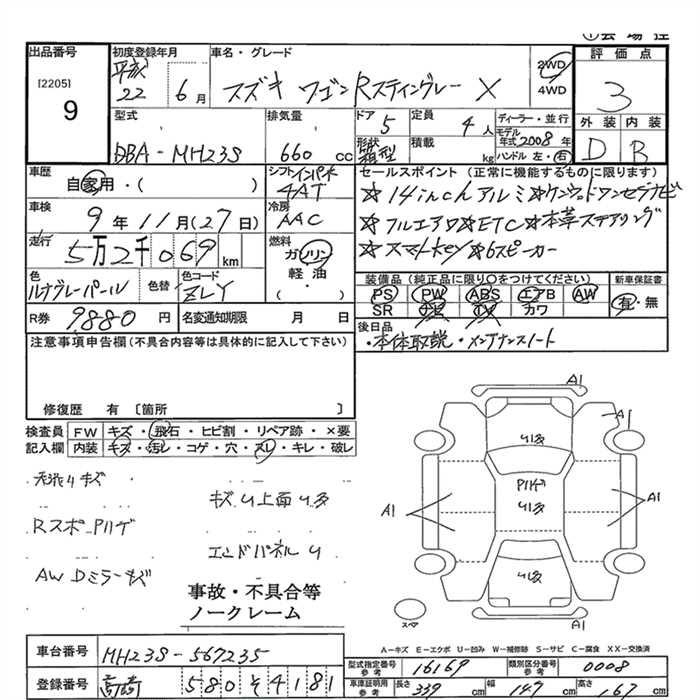 ①会場控
出品番号 [2205] 9
初度登録年月 平成 22 6月
車名・グレード スズキ ワゴンRスティングレー X
2WD 4WD
評価点 3
型式 DBA-MH23S
排気量 660 cc
ドア 5
定員 4人
ディーラー・並行
モデル年式 2008年
形状 箱型
積載 kg
ハンドル 左・右
外装 D 内装 B
車歴 自家用・( )
シフト インパネ 4AT
車検 9年11月(27日)
冷房 AAC
走行 5万2千069 km
燃料 ガソリン 軽油 ( )
色 ルナグレーパール
色替
色コード ZLY
R券 9880円
名変通知期限 月 日
セールスポイント (正常に機能するものに限ります)
☆14inchアルミ☆ケンウッドワンセグナビ
☆フルエアロ☆ETC☆本革ステアリング
☆スマートkey☆6スピーカー
装備品(純正品に限り○をつけてください)
PS PW ABS エアB AW
SR ナビ TV カワ
新車保証書 有・無
後日品
・本体取説・メンテナンスノート
注意事項申告欄(不具合内容等は具体的に記入して下さい)
修復歴 有 〔箇所 〕
検査員記入欄
FW キズ・飛石・ヒビ割・リペア跡・×要
内装 キズ・汚レ・コゲ・穴・スレ・キレ・破レ
キズU上面U多
RスポPハゲ
エンドパネルU
AW Dミラーキズ
事故・不具合等
ノークレーム
A1
A1
U多
Pハゲ
U多
A1
A1
U多
A1
スペア
A-キズ E-エクボ U-凹み W-補修跡 S-サビ C-腐食 XX-交換済
車台番号 MH23S-567235
登録番号 高崎 580 そ 4181
型式指定番号 参考 16169
類別区分番号 参考 0008
車庫証明用 参考 長さ 339cm 幅 147cm 高さ 167cm